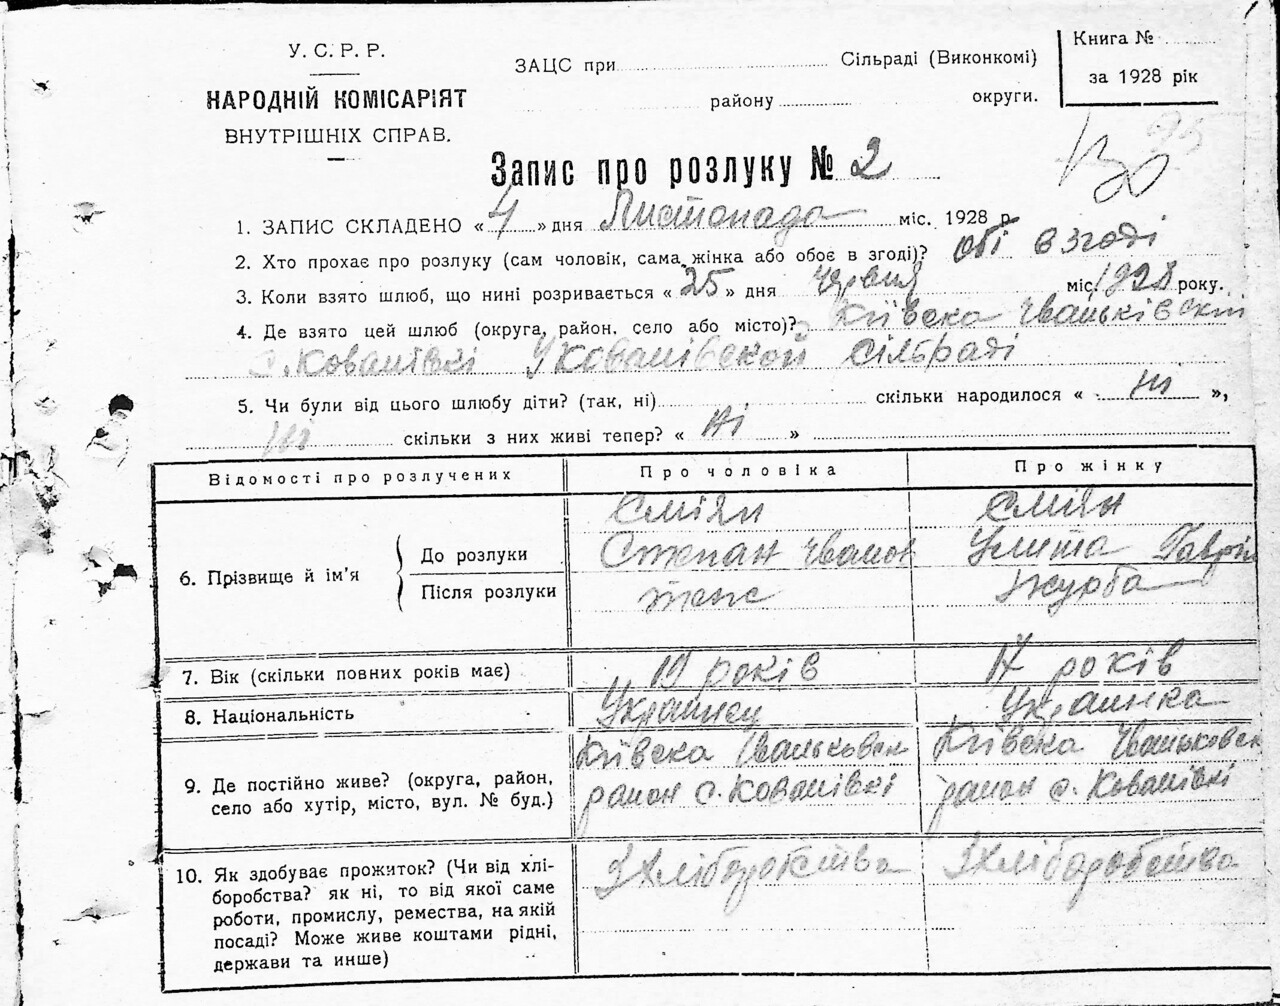 У. С. Р. Р.
НАРОДНІЙ КОМІСАРІЯТ
ВНУТРІШНІХ СПРАВ.
ЗАЦС при Сільраді (Виконкомі)
району округи.
Книга №
за 1928 рік
Запис про розлуку № 2
1. ЗАПИС СКЛАДЕНО « 4 » дня Листопада міс. 1928 р.
2. Хто прохає про розлуку (сам чоловік, сама жінка або обоє в згоді)? Обі в згоді
3. Коли взято шлюб, що нині розривається « 25 » дня Червня міс. 1928 року.
4. Де взято цей шлюб (округа, район, село або місто)? Київска
с. Кованівкі У Кованівской сільраді
5. Чи були від цього шлюбу діти? (так, ні) скільки народилося « ні »,
ні скільки з них живі тепер? « Ні »
Відомості про розлучених Про чоловіка Про жінку
6. Прізвище й ім'я
До розлуки
Після розлуки
Сміян
Степан Іванов
теж
Сміян
Улита Гаврил
Журба
7. Вік (скільки повних років має) 19 років 17 років
8. Національність Украинец Украинка
9. Де постійно живе? (округа, район,
село або хутір, місто, вул. № буд.)
Київска Іваньковск
район с. Кованівкі
Київска Іваньковск
район с. Кованівкі
10. Як здобуває прожиток? (Чи від хлі-
боробства? як ні, то від якої саме
роботи, промислу, ремества, на якій
посаді? Може живе коштами рідні,
держави та инше)
З хліборобства
З хліборобства